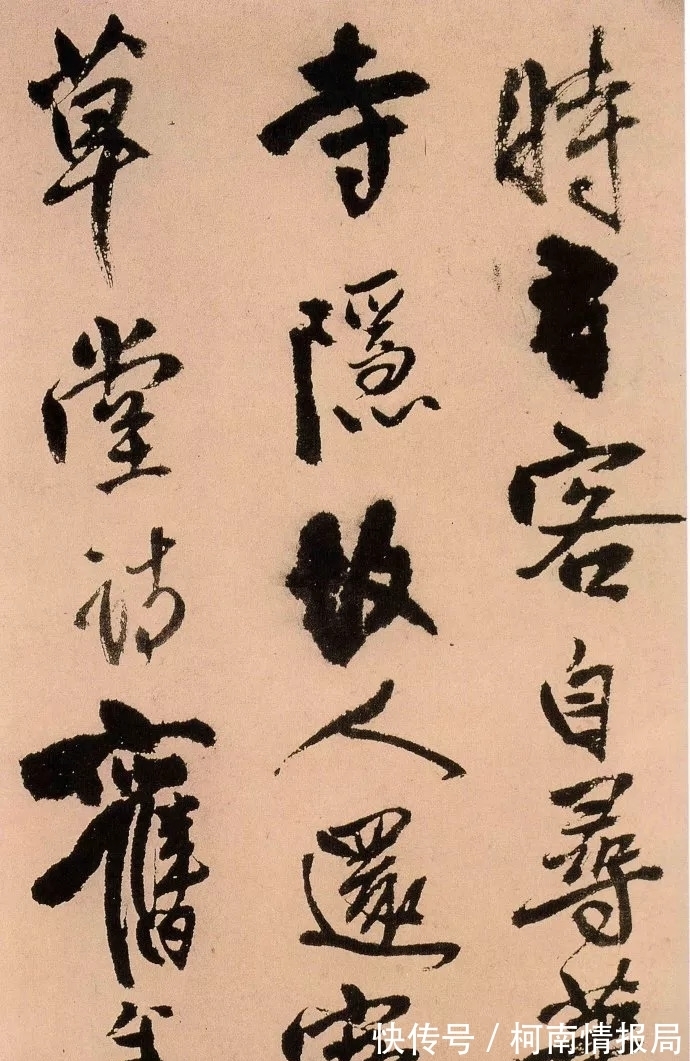 時客自尋
寺隱故人還
草堂詩舊
快传号 / 柯南情报局